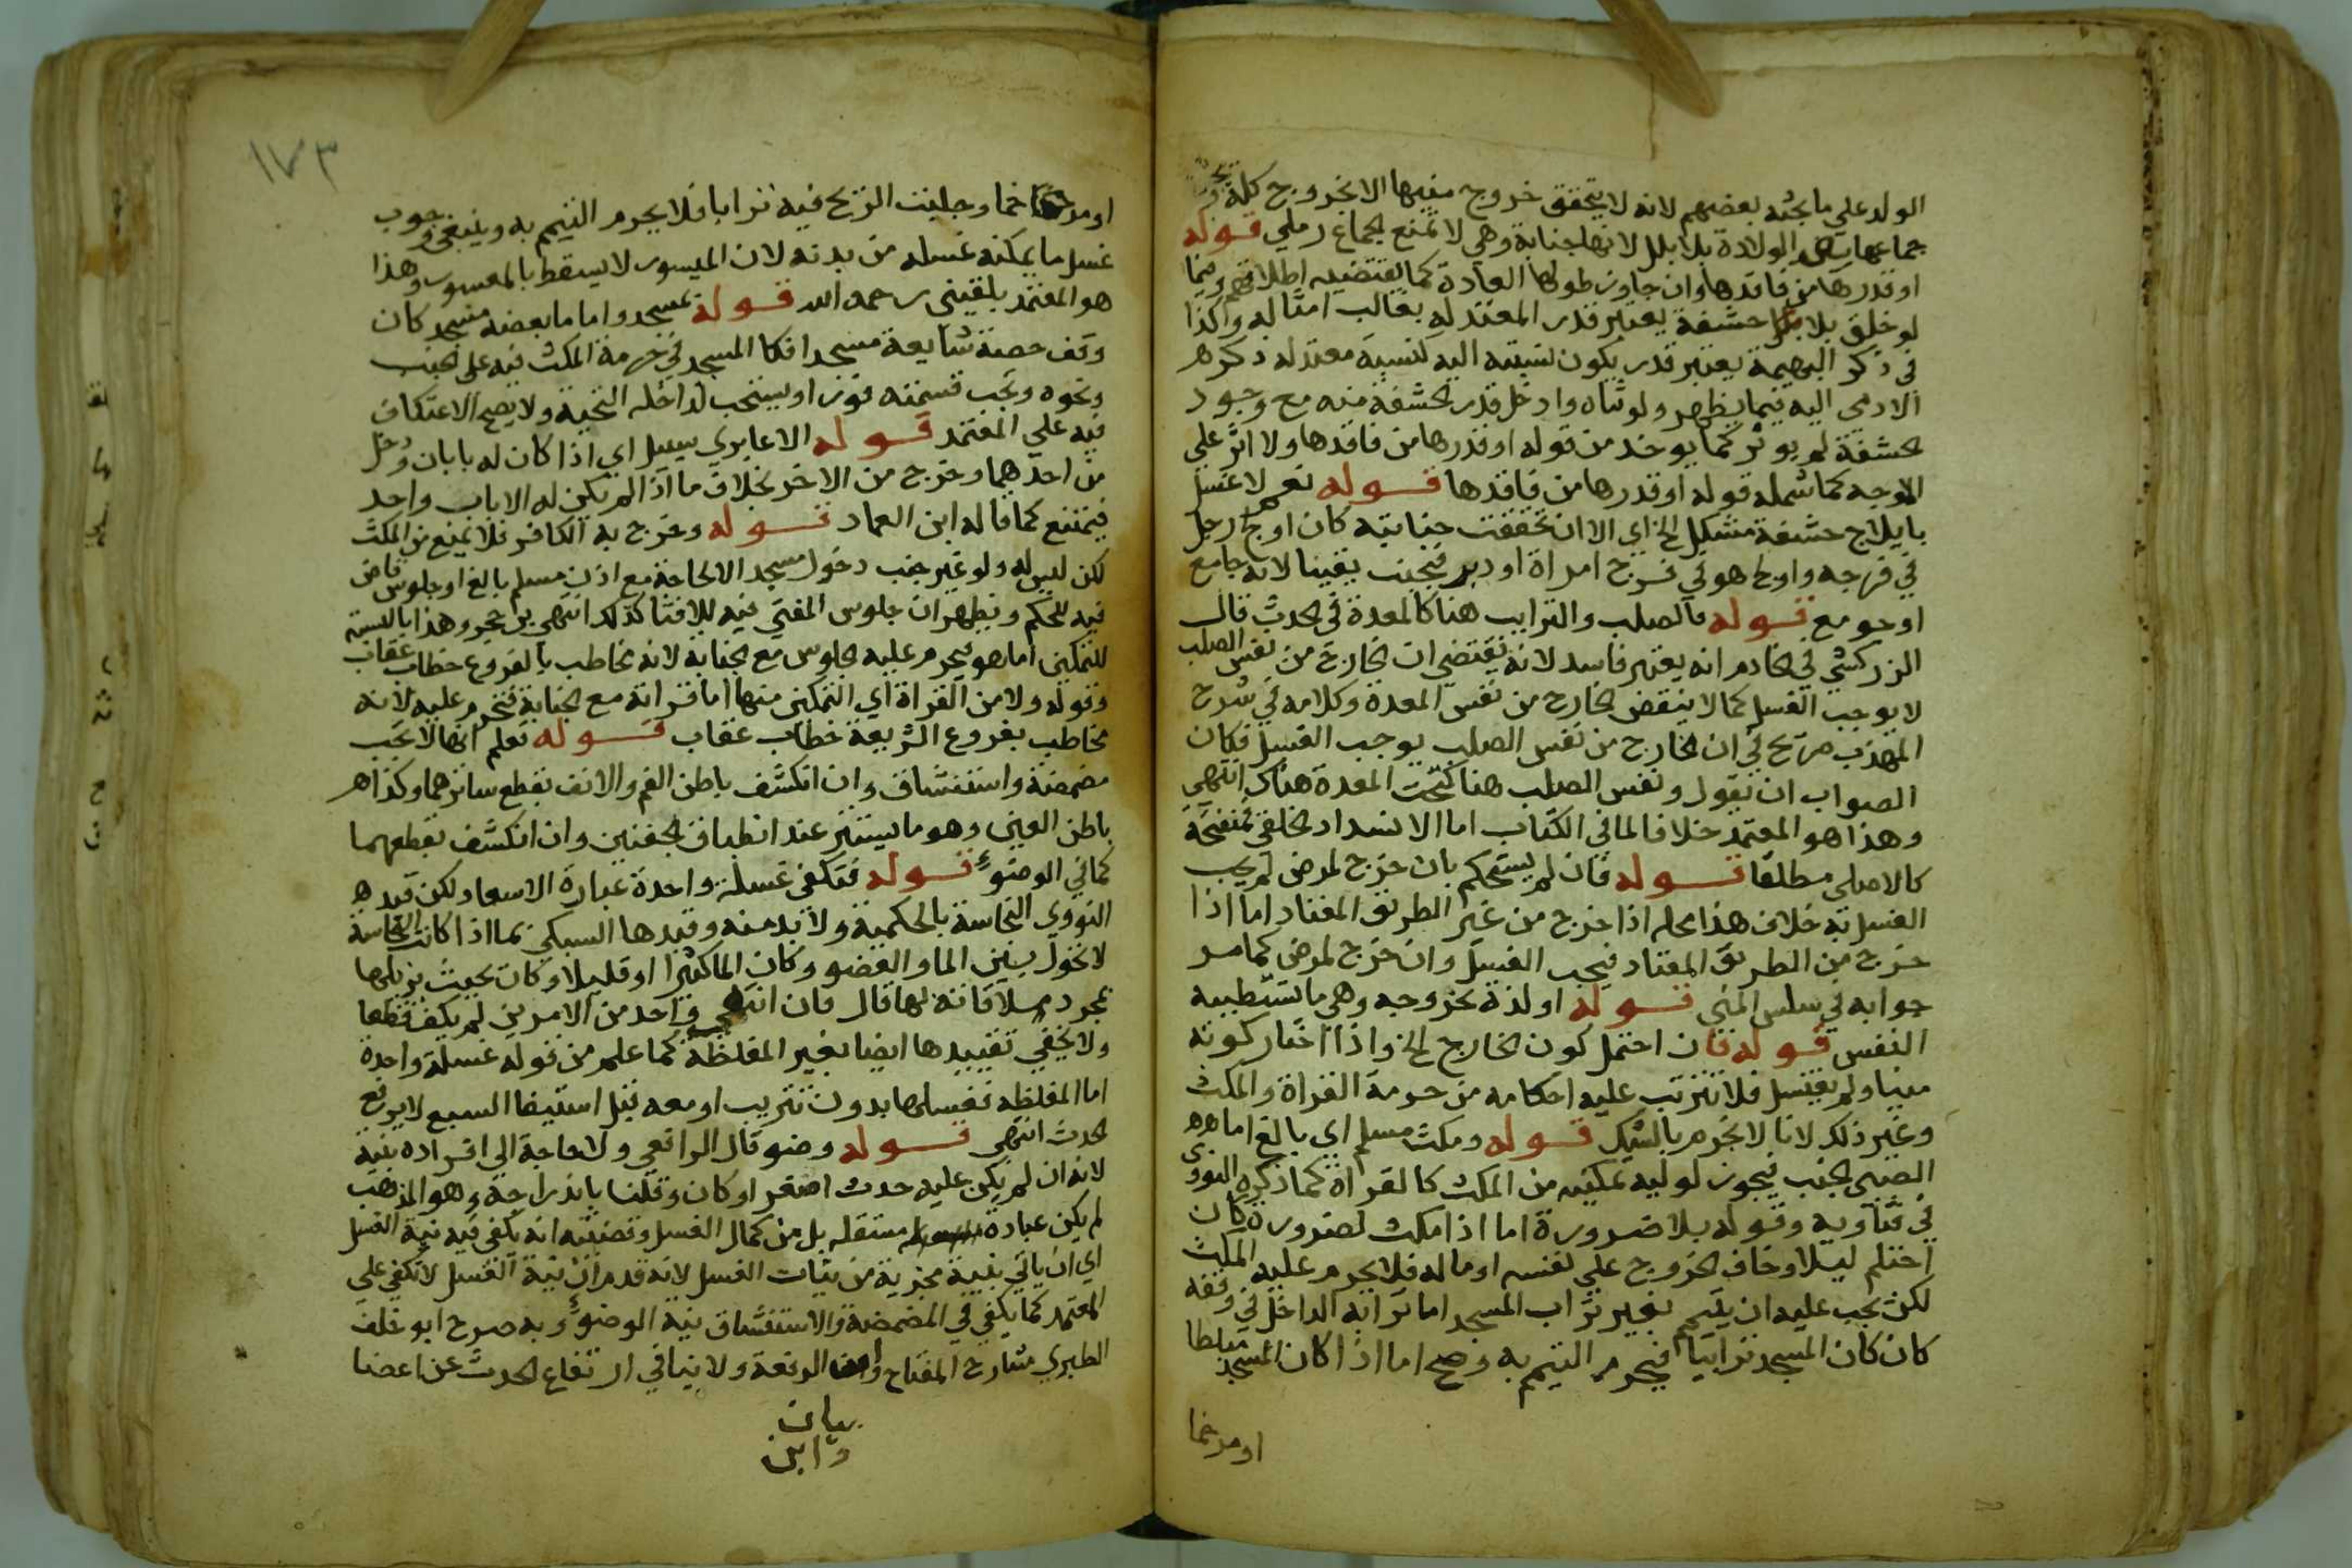 الولد علي ما بحثه بعضهم لانه لا يتحقق خروج منيها الا بخروج كله
جماعها بعد الولادة بلا بلل لانها جنابة وهي لا تمنع الجماع رملي قوله
او قدرها من فاقدها وان جاوز طولها العادة كما يقتضيه اطلاقهم وفيما
لو خلق بلا حشفة يعتبر قدر المعتدله بغالب امثاله وكذا
في ذكر البهيمة يعتبر قدر يكون نسبته اليه كنسبة معتدله ذكر
الادمي اليه فيما يظهر ولو ثناه وادخل قدر الحشفة منه مع وجود
الحشفة لم يوثر كما يوخذ من قوله او قدرها من فاقدها ولا اثر علي
الاوجه كما شمله قوله او قدرها من فاقدها قوله نعم لا غسل
بايلاج حشفة مشكل الخ اي الا ان تحققت جنابته كان اولج رجل
في فرجه واولج هو في فرج امراة او دبر فيجنب يقينا لانه جامع
او جومع قوله فالصلب والترايب هنا كالمعدة في الحدث قال
الزركشي في الخادم انه يعتبر فاسد لانه يقتضي ان الخارج من نفس الصلب
لا يوجب الغسل كما لا ينقض الخارج من نفس المعدة وكلامه في شرح
المهذب صريح في ان الخارج من نفس الصلب يوجب الغسل فكان
الصواب ان يقول ونفس الصلب هنا كتحت المعدة هناك انتهي
وهذا هو المعتمد خلافا لما في الكتاب اما الانسداد الخلقي فمنفتحة
كالاصلي مطلقا قوله فان لم يستحكم بان خرج لمرض لم يجب
الغسل به خلاف هذا محله اذا خرج من غير الطريق المعتاد اما اذا
خرج من الطريق المعتاد فيجب الغسل وان خرج لمرض كما مر
جوابه في سلس المني قوله او لذة بخروجه وهي ما تستطيبه
النفس قوله فان احتمل كون الخارج الخ واذا اختار كونه
منيا ولم يغتسل فلا تترتب عليه احكامه من حرمة القراة والمكث
وغير ذلك لانا لا نحرم بالشك قوله ومكث مسلم اي بالغ اما
الصبي الجنب فيجوز لوليه تمكينه من المكث كالقراة كما ذكره النووي
في فتاويه وقوله بلا ضرورة اما اذا مكث لضرورة كان
احتلم ليلا وخاف الخروج علي نفسه او ماله فلا يحرم عليه المكث
لكن يجب عليه ان يتيمم بغير تراب المسجد اما ترابه الداخل في وقفه
كان كان المسجد ترابيا فيحرم التيمم به وصح اما اذا كان المسجد مبلطا
او مرخما
١٧٣
او مرخما وجلبت الريح فيه ترابا فلا يحرم التيمم به وينبغي وجوب
غسل ما يمكنه غسله من بدنه لان الميسور لا يسقط بالمعسور وهذا
هو المعتمد بلقيني رحمه الله قوله بمسجد واما ما بعضه مسجد كان
وقف حصة شايعة مسجدا فكا المسجد في حرمة المكث فيه علي الجنب
ونحوه وتجب قسمته فورا ويستحب لداخله التحية ولا يصح الاعتكاف
فيه علي المعتمد قوله الا عابري سبيل اي اذا كان له بابان ودخل
من احدهما وخرج من الاخر بخلاف ما اذا لم يكن له الا باب واحد
فيمتنع كما قاله ابن العماد قوله وخرج به الكافر فلا يمنع من المكث
لكن ليس له ولو غير جنب دخول مسجد الا لحاجة مع اذن مسلم بالغ او جلوس قاض
فيه للحكم ويظهر ان جلوس المفتي فيه للافتا كذلك انتهي بن حجر وهذا بالنسبة
للتمكين اما هو فيحرم عليه الجلوس مع الجنابة لانه مخاطب بالفروع خطاب عقاب
وقوله ولا من القراة اي التمكين منها اما قراته مع الجنابة فتحرم عليه لانه
مخاطب بفروع الشريعة خطاب عقاب قوله نعلم انها لا تجب
مضمضة واستنشاق وان انكشف باطن الفم والانف بقطع ساترهما وكذا
باطن العين وهو ما يستتر عند انطباق الجفنين وان انكشف بقطعهما
كما في الوضوء قوله فتكفي غسلة واحدة عبارة الاسعاد لكن قيده
النووي النجاسة بالحكمية ولا بد منه وقيدها السبكي بما اذا كانت النجاسة
لا تحول بين الما والعضو وكان الما كثيرا او قليلا وكان بحيث يزيلها
بمجرد ملاقاته لها قال فان انتفي واحد من الامرين لم يكف قطعا
ولا يخفي تقييدها ايضا بغير المغلظة كما علم من قوله غسلة واحدة
اما المغلظه فغسلها بدون تتريب او معه قبل استيفا السبع لا يرفع
الحدث انتهي قوله وضو قال الرافعي ولا حاجة الي افراده بنية
لانه ان لم يكن عليه حدث اصغر او كان وقلنا باندراجه وهو المذهب
لم يكن عبادة مستقله بل من كمال الغسل وقضيته انه يكفي فيه نية الغسل
اي ان ياتي بنية مجزية من نيات الغسل لانه قدم ان نية الغسل لا تكفي علي
المعتمد كما يكفي في المضمضة والاستنشاق نية الوضوء وبه صرح ابو خلف
الطبري شارح المفتاح وابن الرفعة ولا ينافي ارتفاع الحدث عن اعضا
بيان
وابن